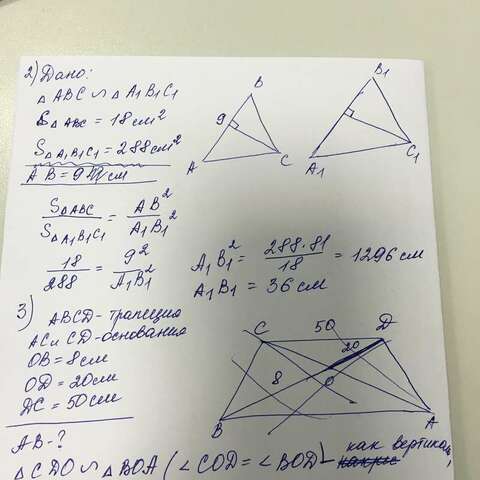 2) Дано:
△ ABC ∽ △ A1B1C1
S△ ABC = 18 см²
S△ A1B1C1 = 288 см²
AB = 9 см
B
9
A
C
B1
A1
C1
S△ABC / S△A1B1C1 = AB² / A1B1²
18 / 288 = 9² / A1B1²
A1B1² = 288·81 / 18 = 1296 см
A1B1 = 36 см
3) ABCD - трапеция
AC и CD - основания
OB = 8 см
OD = 20 см
DC = 50 см
AB - ?
C
50
D
20
8
O
B
A
△ CDO ∽ △ BOA (∠COD = ∠BOD - как вертикал,